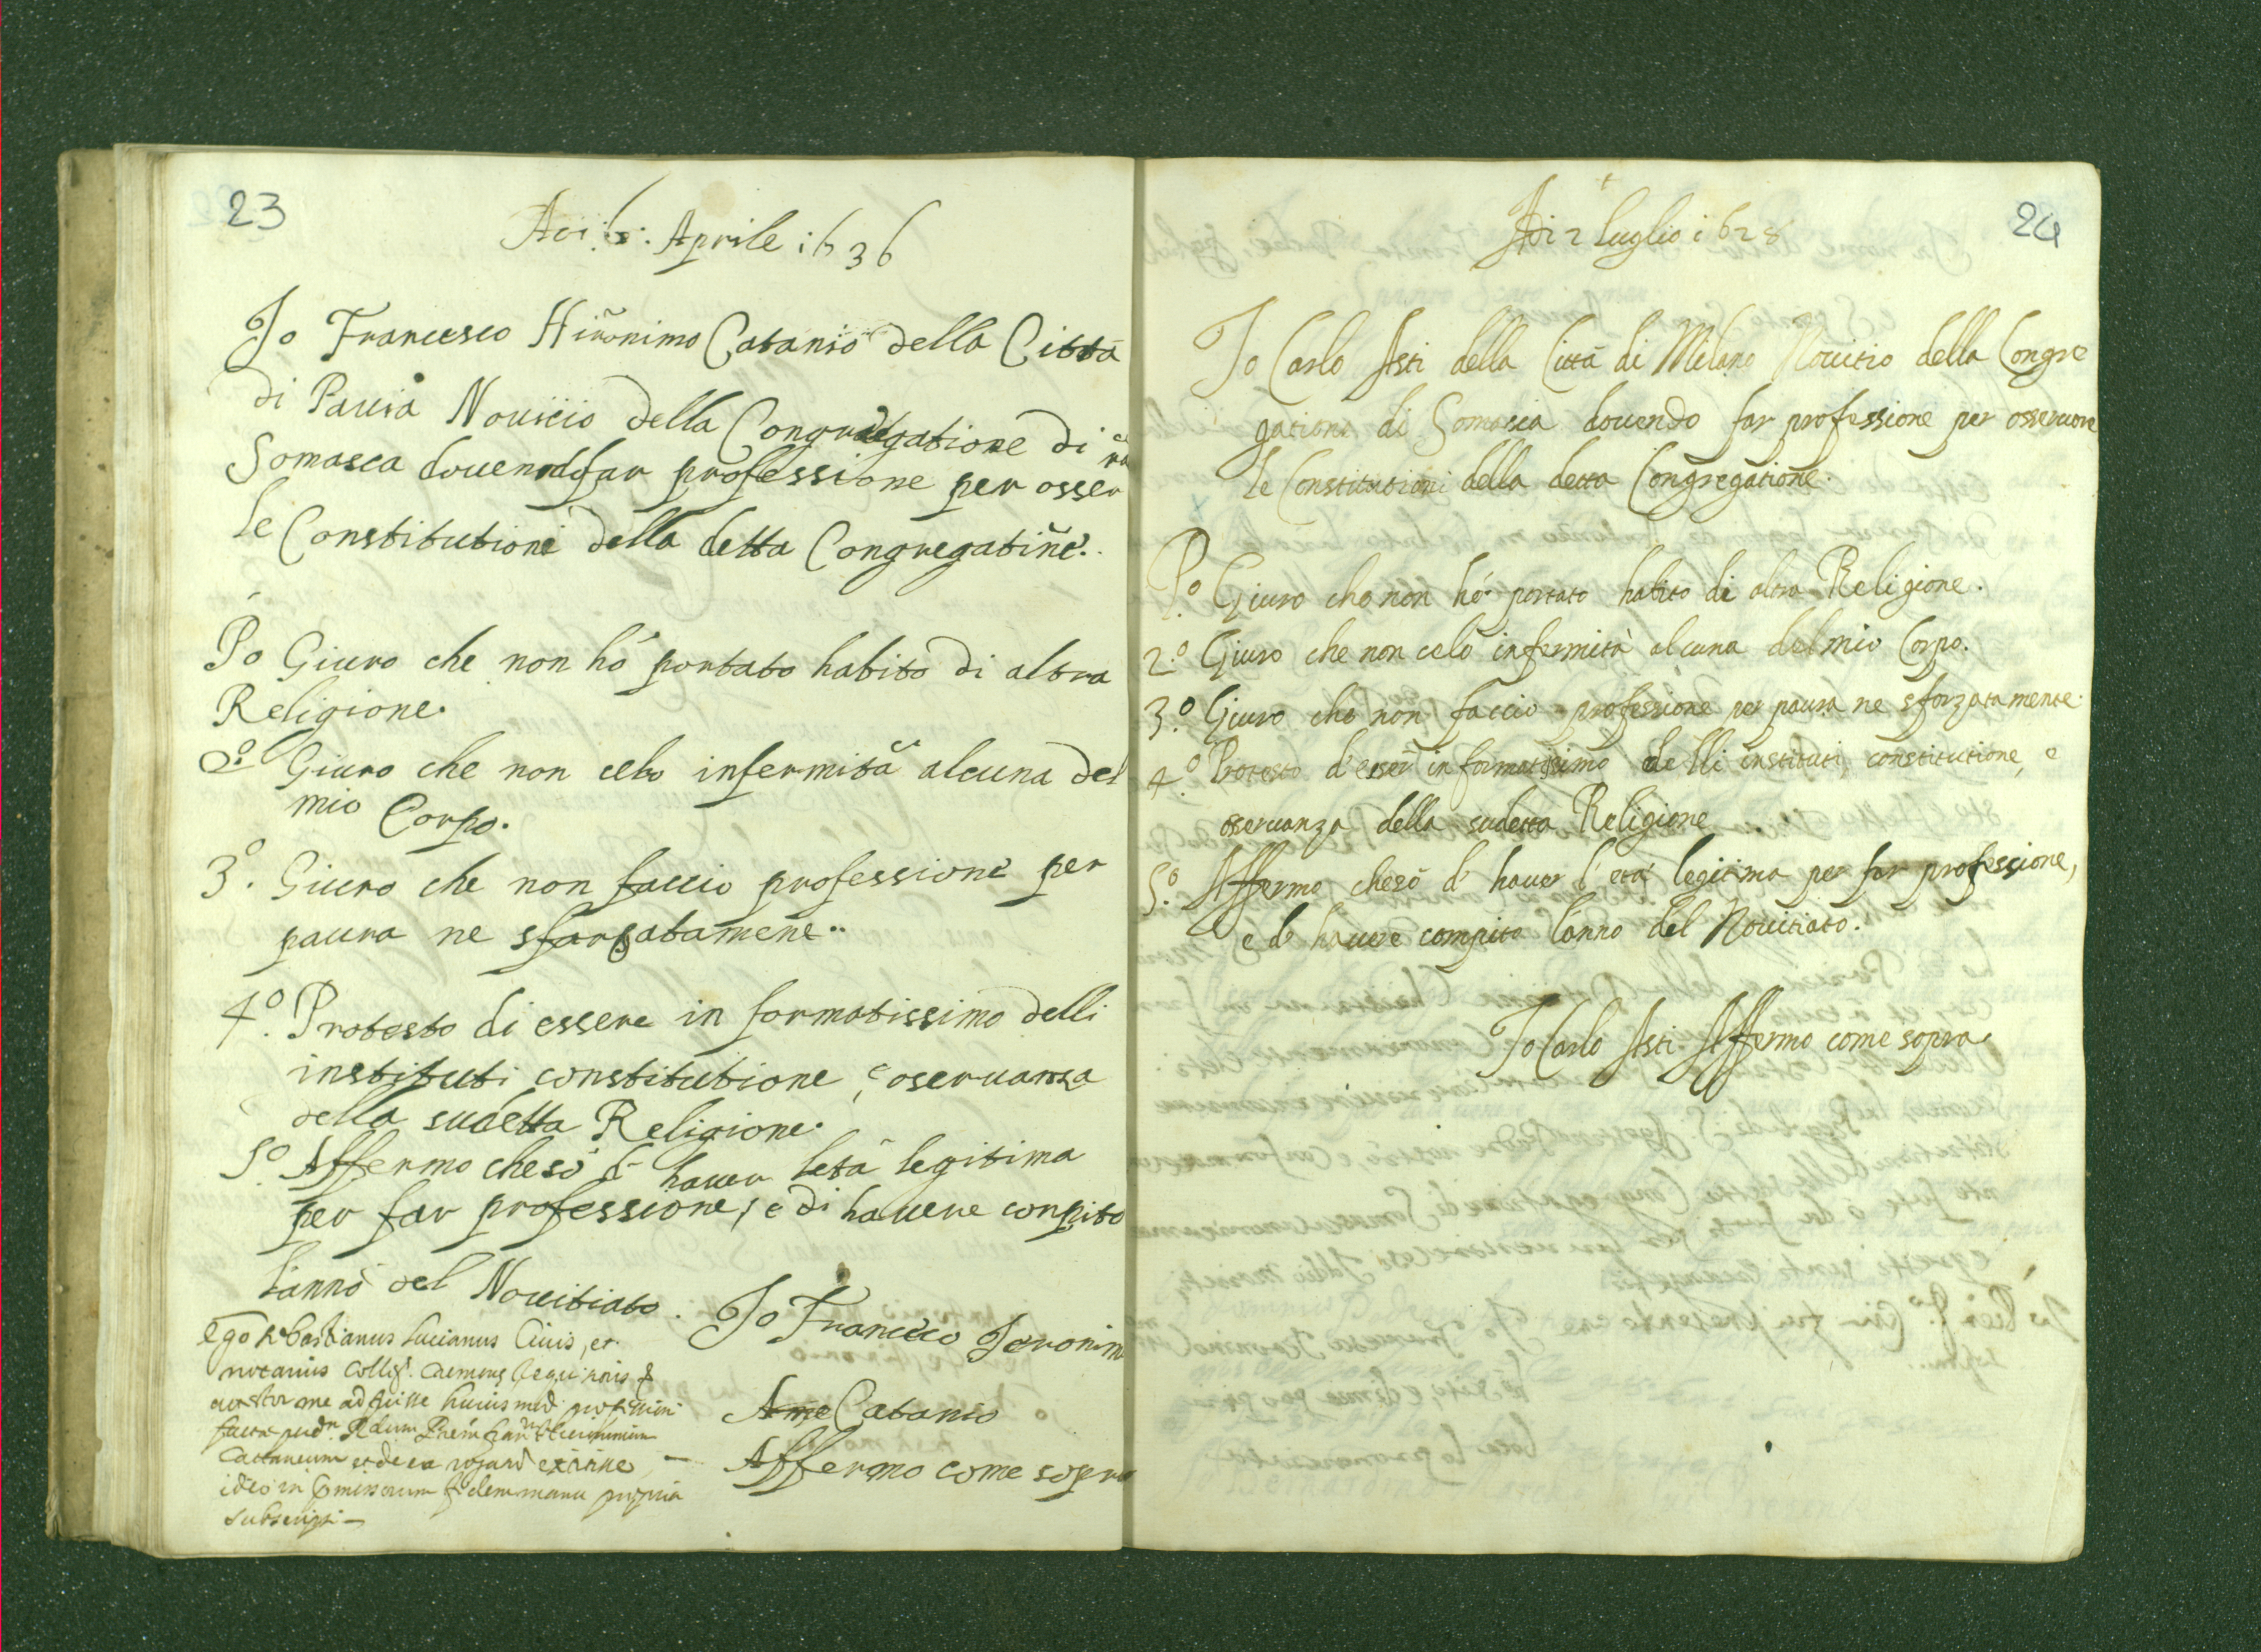 23
Adi :6: Aprile 1636
Io Francesco Hirõnimo Catanio della Città
di Pauia Nouicio della Congregatione di
Somasca douendo far professione per osser
ua
le Constitutioni della detta Congregatiñe.
Po Giuro che non hò portato habito di altra
Religione.
2º Giuro che non celo infermità alcuna del
mio Corpo.
3º. Giuro che non faccio professione per
paura ne sforsatamene..
4º. Protesto di essere in formatissimo delli
instituti constitutione, e oseruanza
della sudetta Religione.
5º. Affermo che sò d hauer letà legitima
per far professione, e di hauere conpito
lanno del Nouitiato.
Io Francesco Ieronim
Ame Catanio
Affermo come sopra
Ego Sebastianus Lucianus Ciuis, et
notarius Colleg. Cremonę
me adfuisse huiusmod. professioni
Cattaneum et de ea rogatū
ideo in fidem manu propria
subscripsi
24
Adi 2 luglio 1628
Io Carlo Asti della Città di Milano Nouitio della Congre
gationi di Somasca douendo far professione per osseruare
le Constitutioni della detta Congregatione.
Pº. Giuro che non hò portato habito di altra Religione.
2.º Giuro che non celo infermità alcuna del mio Corpo.
3.º Giuro che non faccio professione per paura ne sforzatamente.
4.º Protesto d'esser informatissimo delli instituti, constitutione, e
oseruanza della sudetta Religione
5.º Affermo che sò d' hauer l'età legitima per far professione,
e d' hauere compito l'anno del Nouitiato.
Io Carlo Asti Affermo come sopra